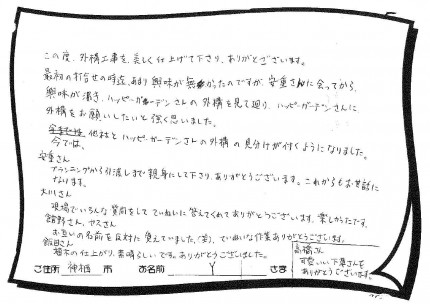 この度、外構工事を美しく仕上げて下さり、ありがとうございます。
最初の打合せの時点、あまり興味が無かったのですが、安重さんに会ってから、
興味が湧き、ハッピーガーデンさんの外構を見て廻り、ハッピーガーデンさんに
外構をお願いしたいと強く思いました。
今では、他社とハッピーガーデンさんの外構の見分けが付くようになりました。
安重さん
プランニングから引渡しまで親身にして下さり、ありがとうございます。これからもお世話に
なります。
大川さん
現場でいろんな質問をしてていねいに答えてくれてありがとうございます。楽しかったです。
舘野さん、ヤスさん
お互いの名前を反対に覚えていました(笑)、ていねいな作業ありがとうございます。
飯田さん
植木の仕上がり、素晴らしいです。ありがとうございました。
高橋さん
可愛いい下草さんを
ありがとうございます。
ご住所 神栖 市 お名前 Y さま